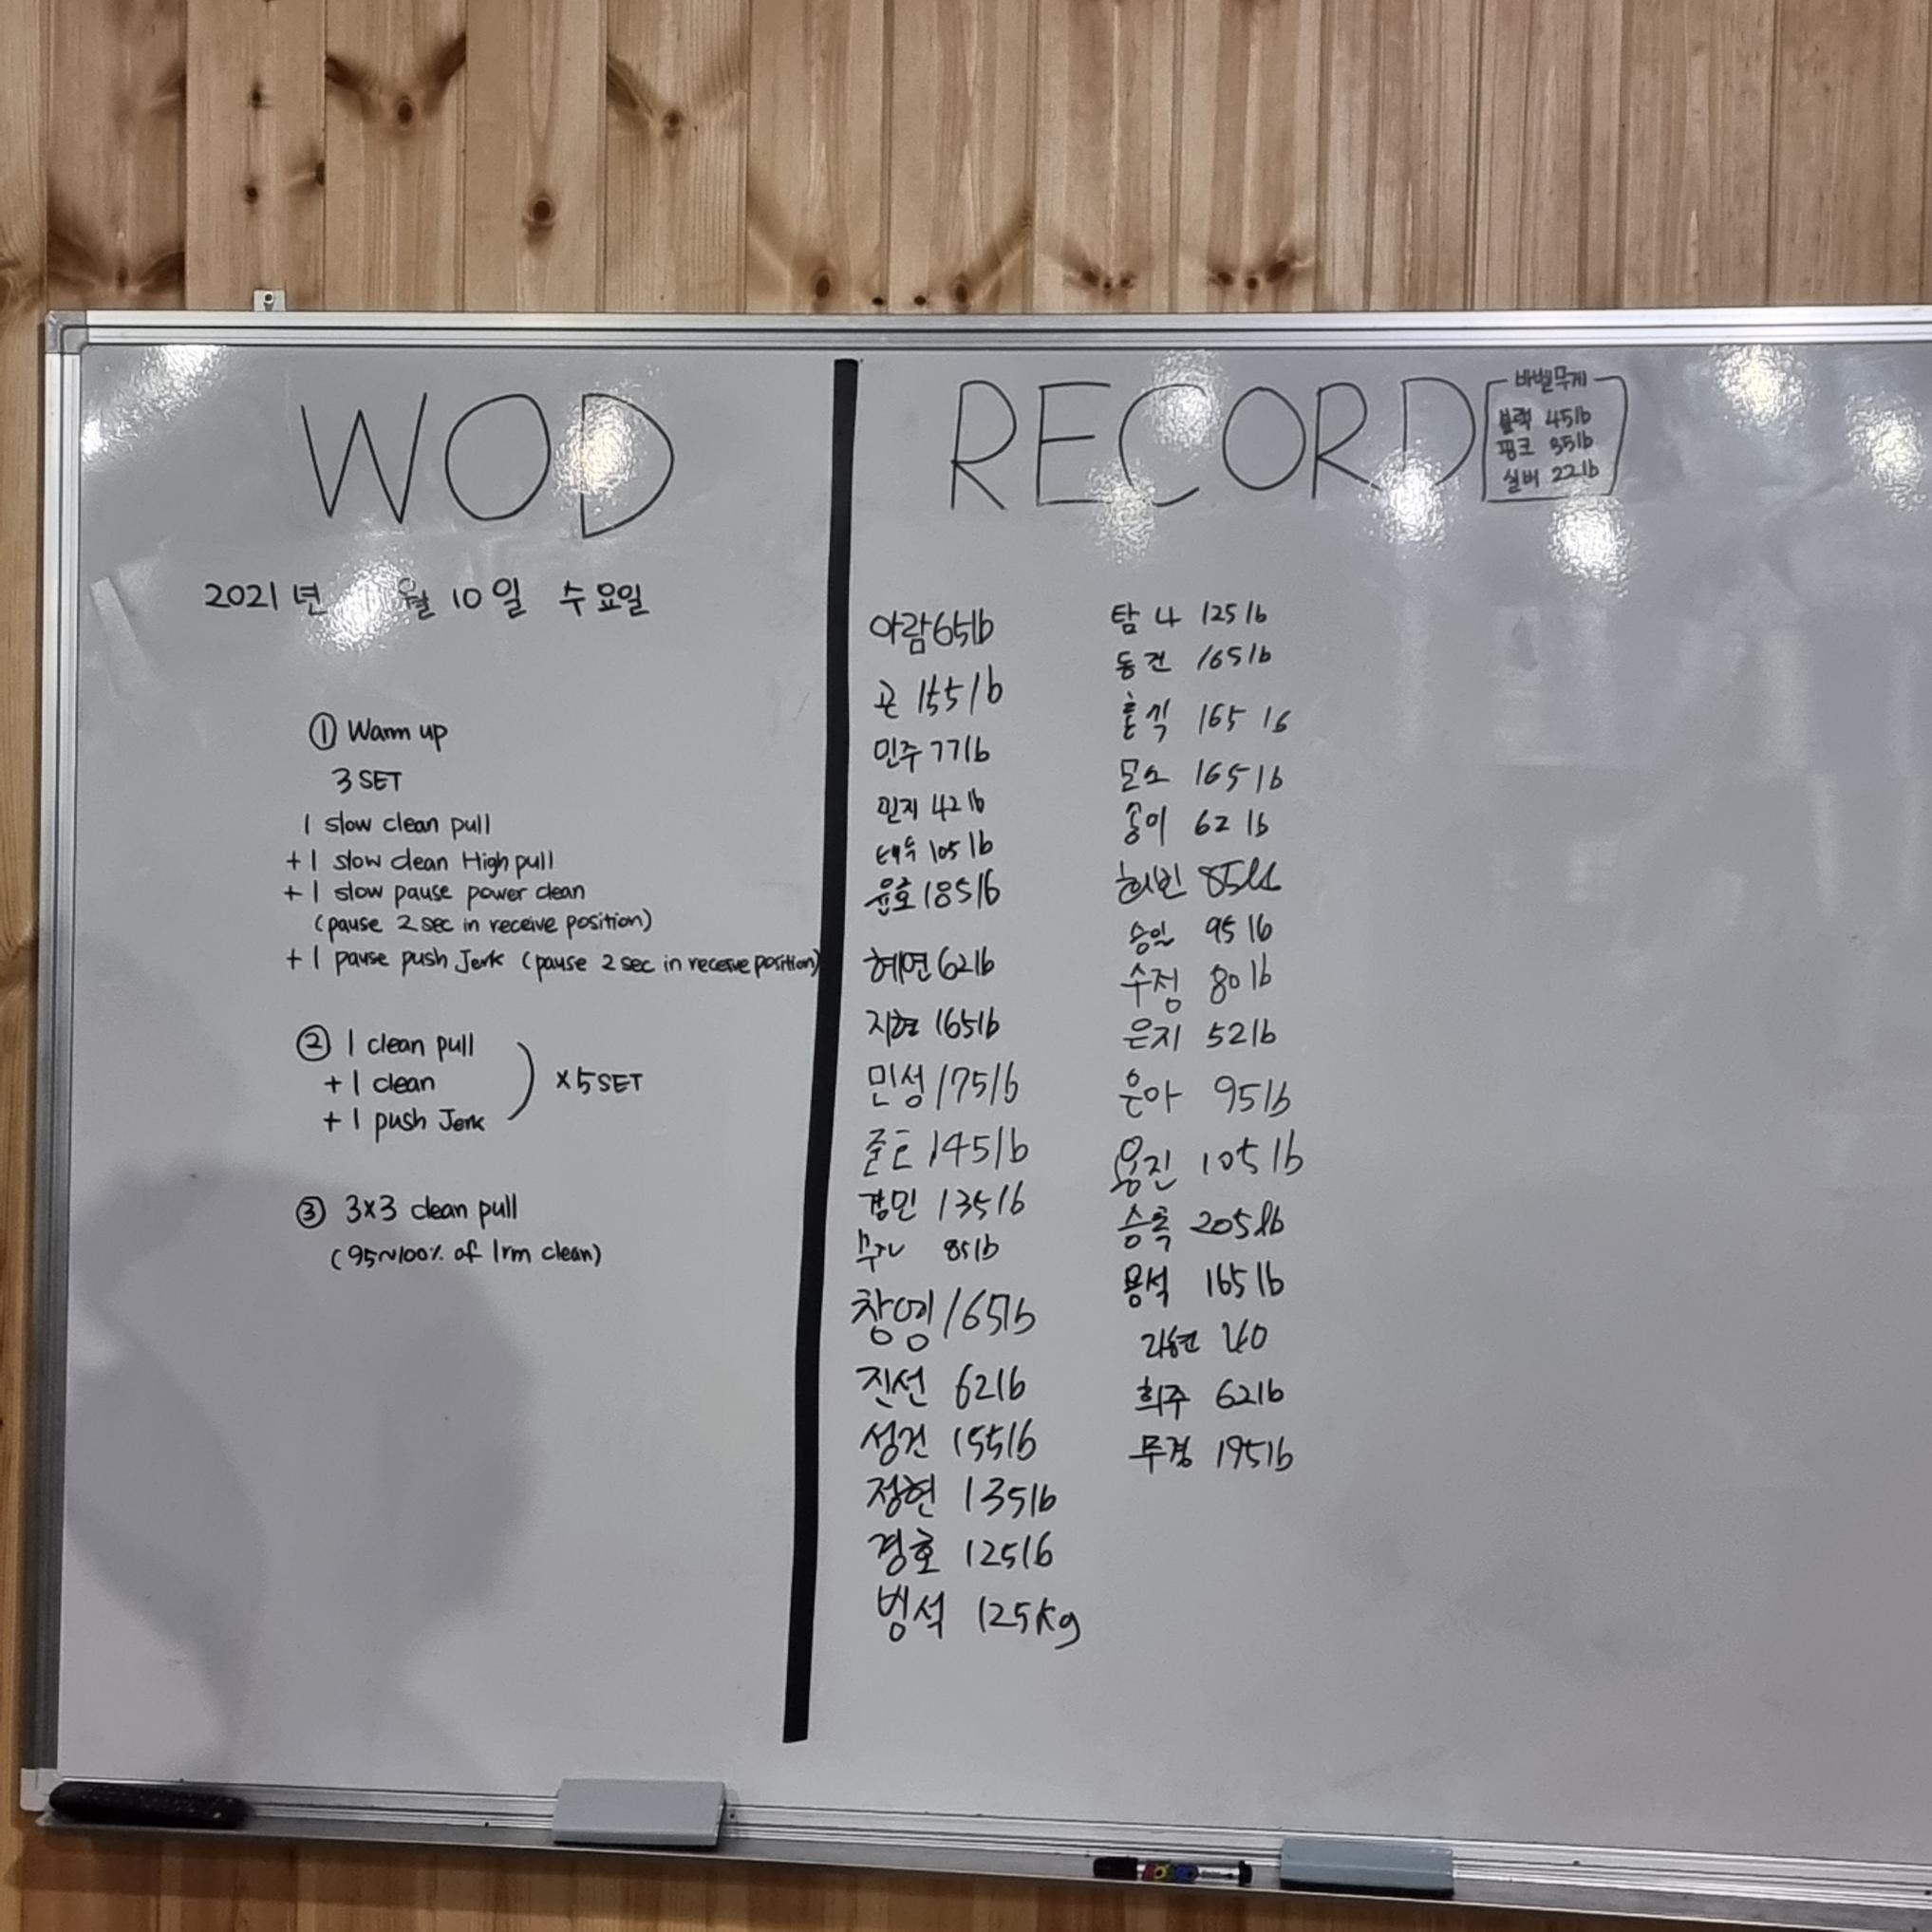 WOD
2021년 월 10일 수요일
① Warm up
3 SET
1 slow clean pull
+1 slow clean High pull
+1 slow pause power clean
(pause 2 sec in receive position)
+1 pause push Jerk (pause 2 sec in receive position)
② 1 clean pull
+1 clean
+1 push Jerk
) ×5 SET
③ 3×3 clean pull
(95~100% of 1rm clean)
RECORD
바벨무게
블랙 45lb
핑크 35lb
실버 22lb
아람 65lb
곤 155lb
민주 77lb
민지 42lb
태수 105lb
윤호 185lb
혜연 62lb
지현 165lb
민성 175lb
145lb
경민 135lb
85lb
창영 165lb
진선 62lb
성건 155lb
정현 135lb
경호 125lb
병석 125kg
탐나 125lb
동건 165lb
165lb
165lb
송이 62lb
희빈 85lb
승일 95lb
수정 80lb
은지 52lb
은아 95lb
용진 105lb
승혹 205lb
용석 165lb
희주 62lb
무경 195lb